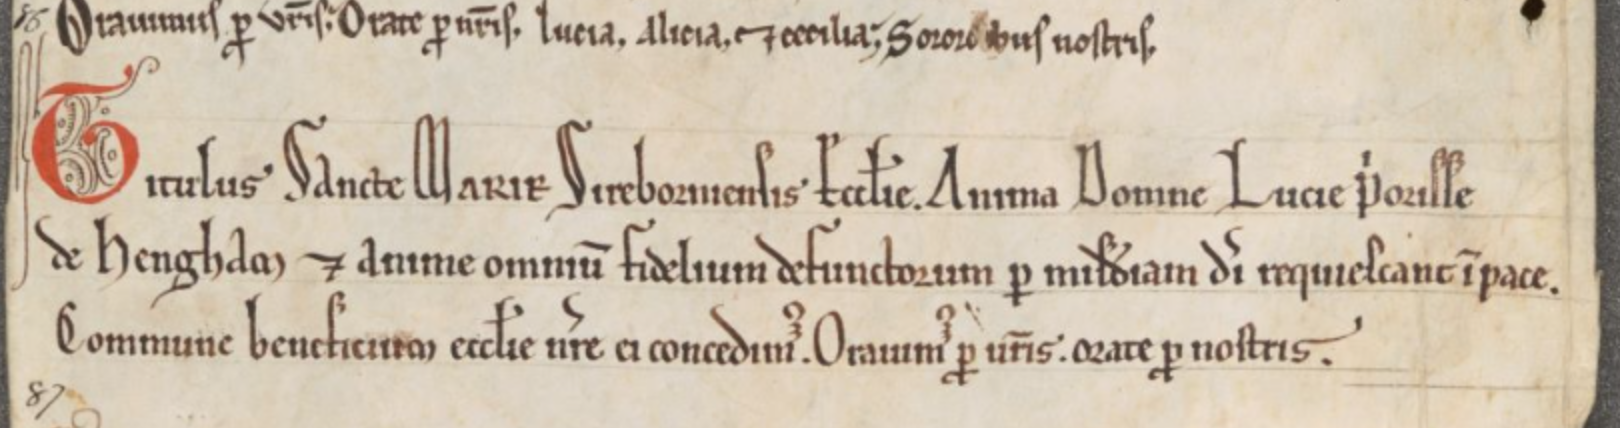 86 Orauimus ꝑ vr̄is. Orate ꝑ nr̄is. Lucia, Alicia, ⁊ cecilia, Sororibus nostris.
Titulus Sancte MARIE Streborniensis Eccl̄ie. Anima Domine Lucie p̓orisse
de hengham ⁊ anime omniū fidelium defunctorum ꝑ mis̄diam dī requiescant ī pace.
Commune beneficium eccl̄ie nr̄e ei concedimꝰ. Orauimꝰ ꝑ ur̄is: orate ꝑ nostris.
87